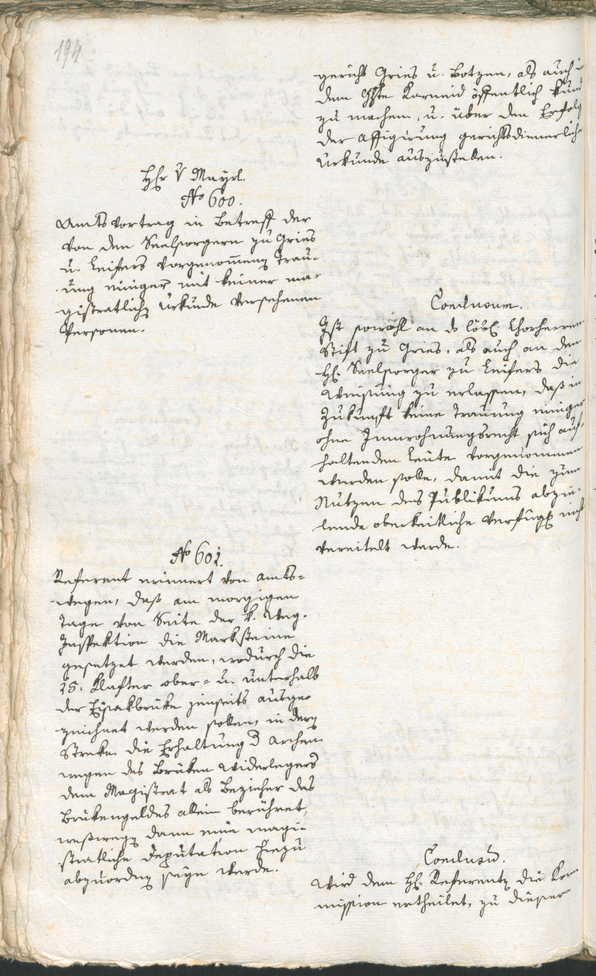 194
gericht Gries u. Botzen, als auch in
dem Ghte Karneid öffentlich kund
zu machen, u. über den Erfolg
der Affigirung gerichtsdienerliche
Urkunde auszustellen.
Hr v Mayrl.
No 600.
Amtsvortrag in Betreff der
von den Seelsorgern zu Gries
u. Leifers vorgenommen Trau-
ung einiger mit keiner ma-
gistratlich Urkunde versehenen
Personen.
Conclusum.
Ist sowohl an das löbl. Chorherren
Stift zu Gries, als auch an den
H. Seelsorger zu Leifers die
Weisung zu erlassen, daß in
Zukunft keine Trauung einiger
ohne Innwohnungsrecht sich auf-
haltenden Leute vorgenommen
werden solle, damit die zum
Nutzen des Publikums abzie-
lende obrigkeitliche Verfügg nicht
vereitelt werde.
No 601.
Referent erinnert von Amts-
wegen, daß am morgigen
Tage von Seite der k. Weg-
Inspektion die Marksteine
gesetzet werden, wodurch die
25. Klafter ober- u. unterhalb
der Eisakbrüke jenseits ausge-
zeichnet werden sollen, in derz
Streke die Erhaltung d Archen
wegen des Brüken Widerlegers
dem Magistrat als Bezieher des
Brükengeldes allein berühret,
weßwegen dann eine magi-
stratliche Deputation hiezu
abzuordnen seyn werde.
Conclusum.
Wird dem H. Referenten die Kom-
mission ertheilet, zu dieser